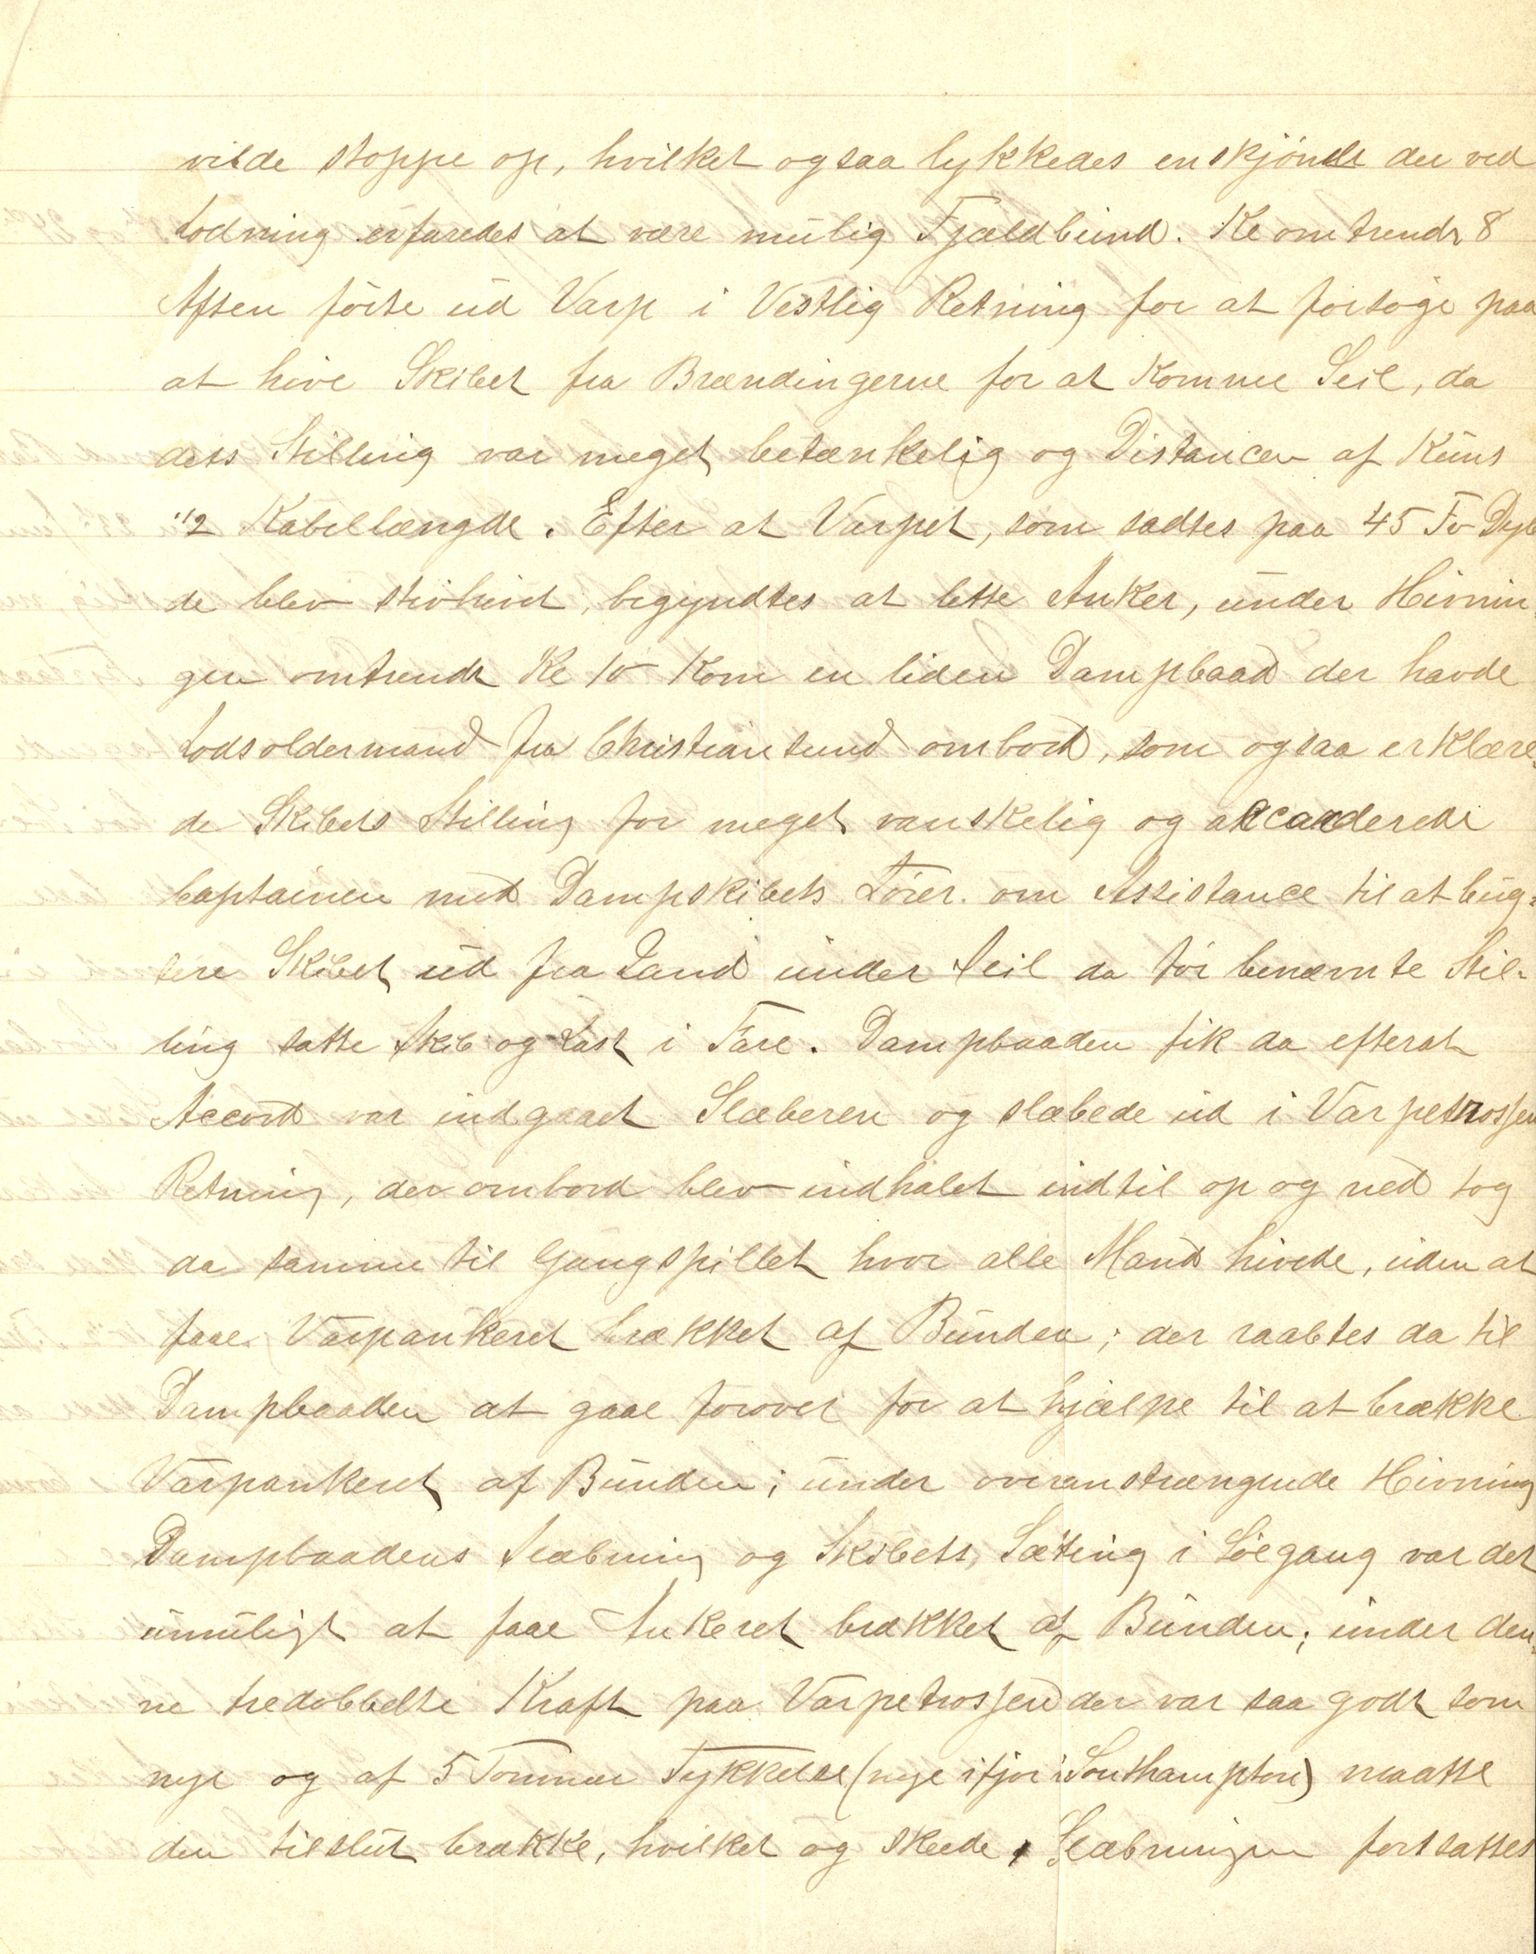 vilde stoppe op, hvilket ogsaa lykkedes enskjöndt der ved
Lodning erfaredes at være mulig Fjældbund. Kl omtrendt 8
Aften förte ud Varp i Vestlig Retning for at forsöge paa
at hive Skibet fra Brændingerne for at komme Seil, da
dets Stilling var meget betænkelig og Distancen af Kuns
1/2 Kabellængde. Efter at Varpet, som sadtes paa 45 Fv Dyb
de blev stivhivet, begyndtes at lette Anker, under Hivnin,
gen omtrendt Kl 10 kom en liden Dampbaad der havde
Lodsoldermand fra Christiansund ombord, som ogsaa erklære,
de Skibets Stilling for meget vanskelig og accorderede
Captainen med Dampskibets Förer om Assistance til at bug-
sere Skibet ud fra Land under Seil da för benævnte Stil-
ling satte Skib og Last i Fare. Dampbaaden fik da efterat
Accord var indgaaet Slæberen og slæbede ud i Varpetrossen
Retning, der ombord blev indhalet indtil op og ned tog
da samme til Gangspillet hvor alle Mand hivede, uden at
faae Varpankeret brækket af Bunden; der raabtes da til
Dampbaaden at gaae forover for at hjælpe til at brække
Varpankeret af Bunden; under overanstrængende Hivning
Dampbaadens Slæbning og Skibets Sætning i Söegang var det
umuligt at faae Ankeret brækket af Bunden; under den-
ne tredobbelte Kraft paa Varpetrossen der var saa godt som
nye og af 5 Tommer Tykkelse (nye ifjor i Southampton) maatte
den tilslut brække, hvilket og skeede, Slæbningen fortsattes